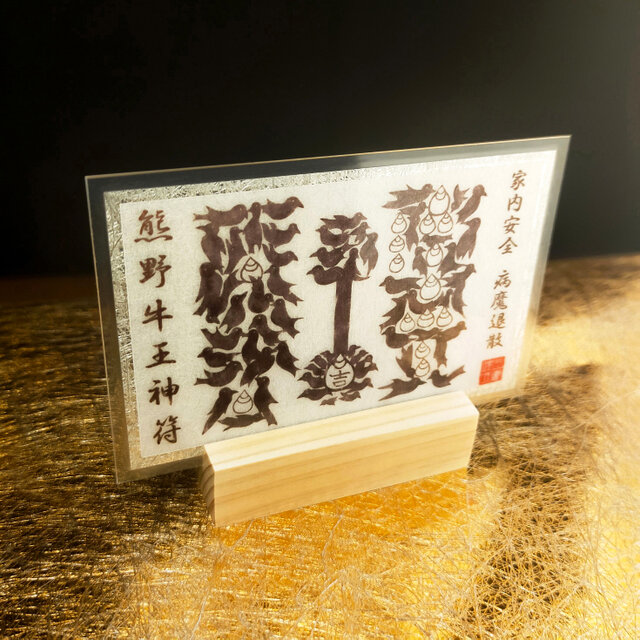 家内安全 病魔退散
熊野牛王神符